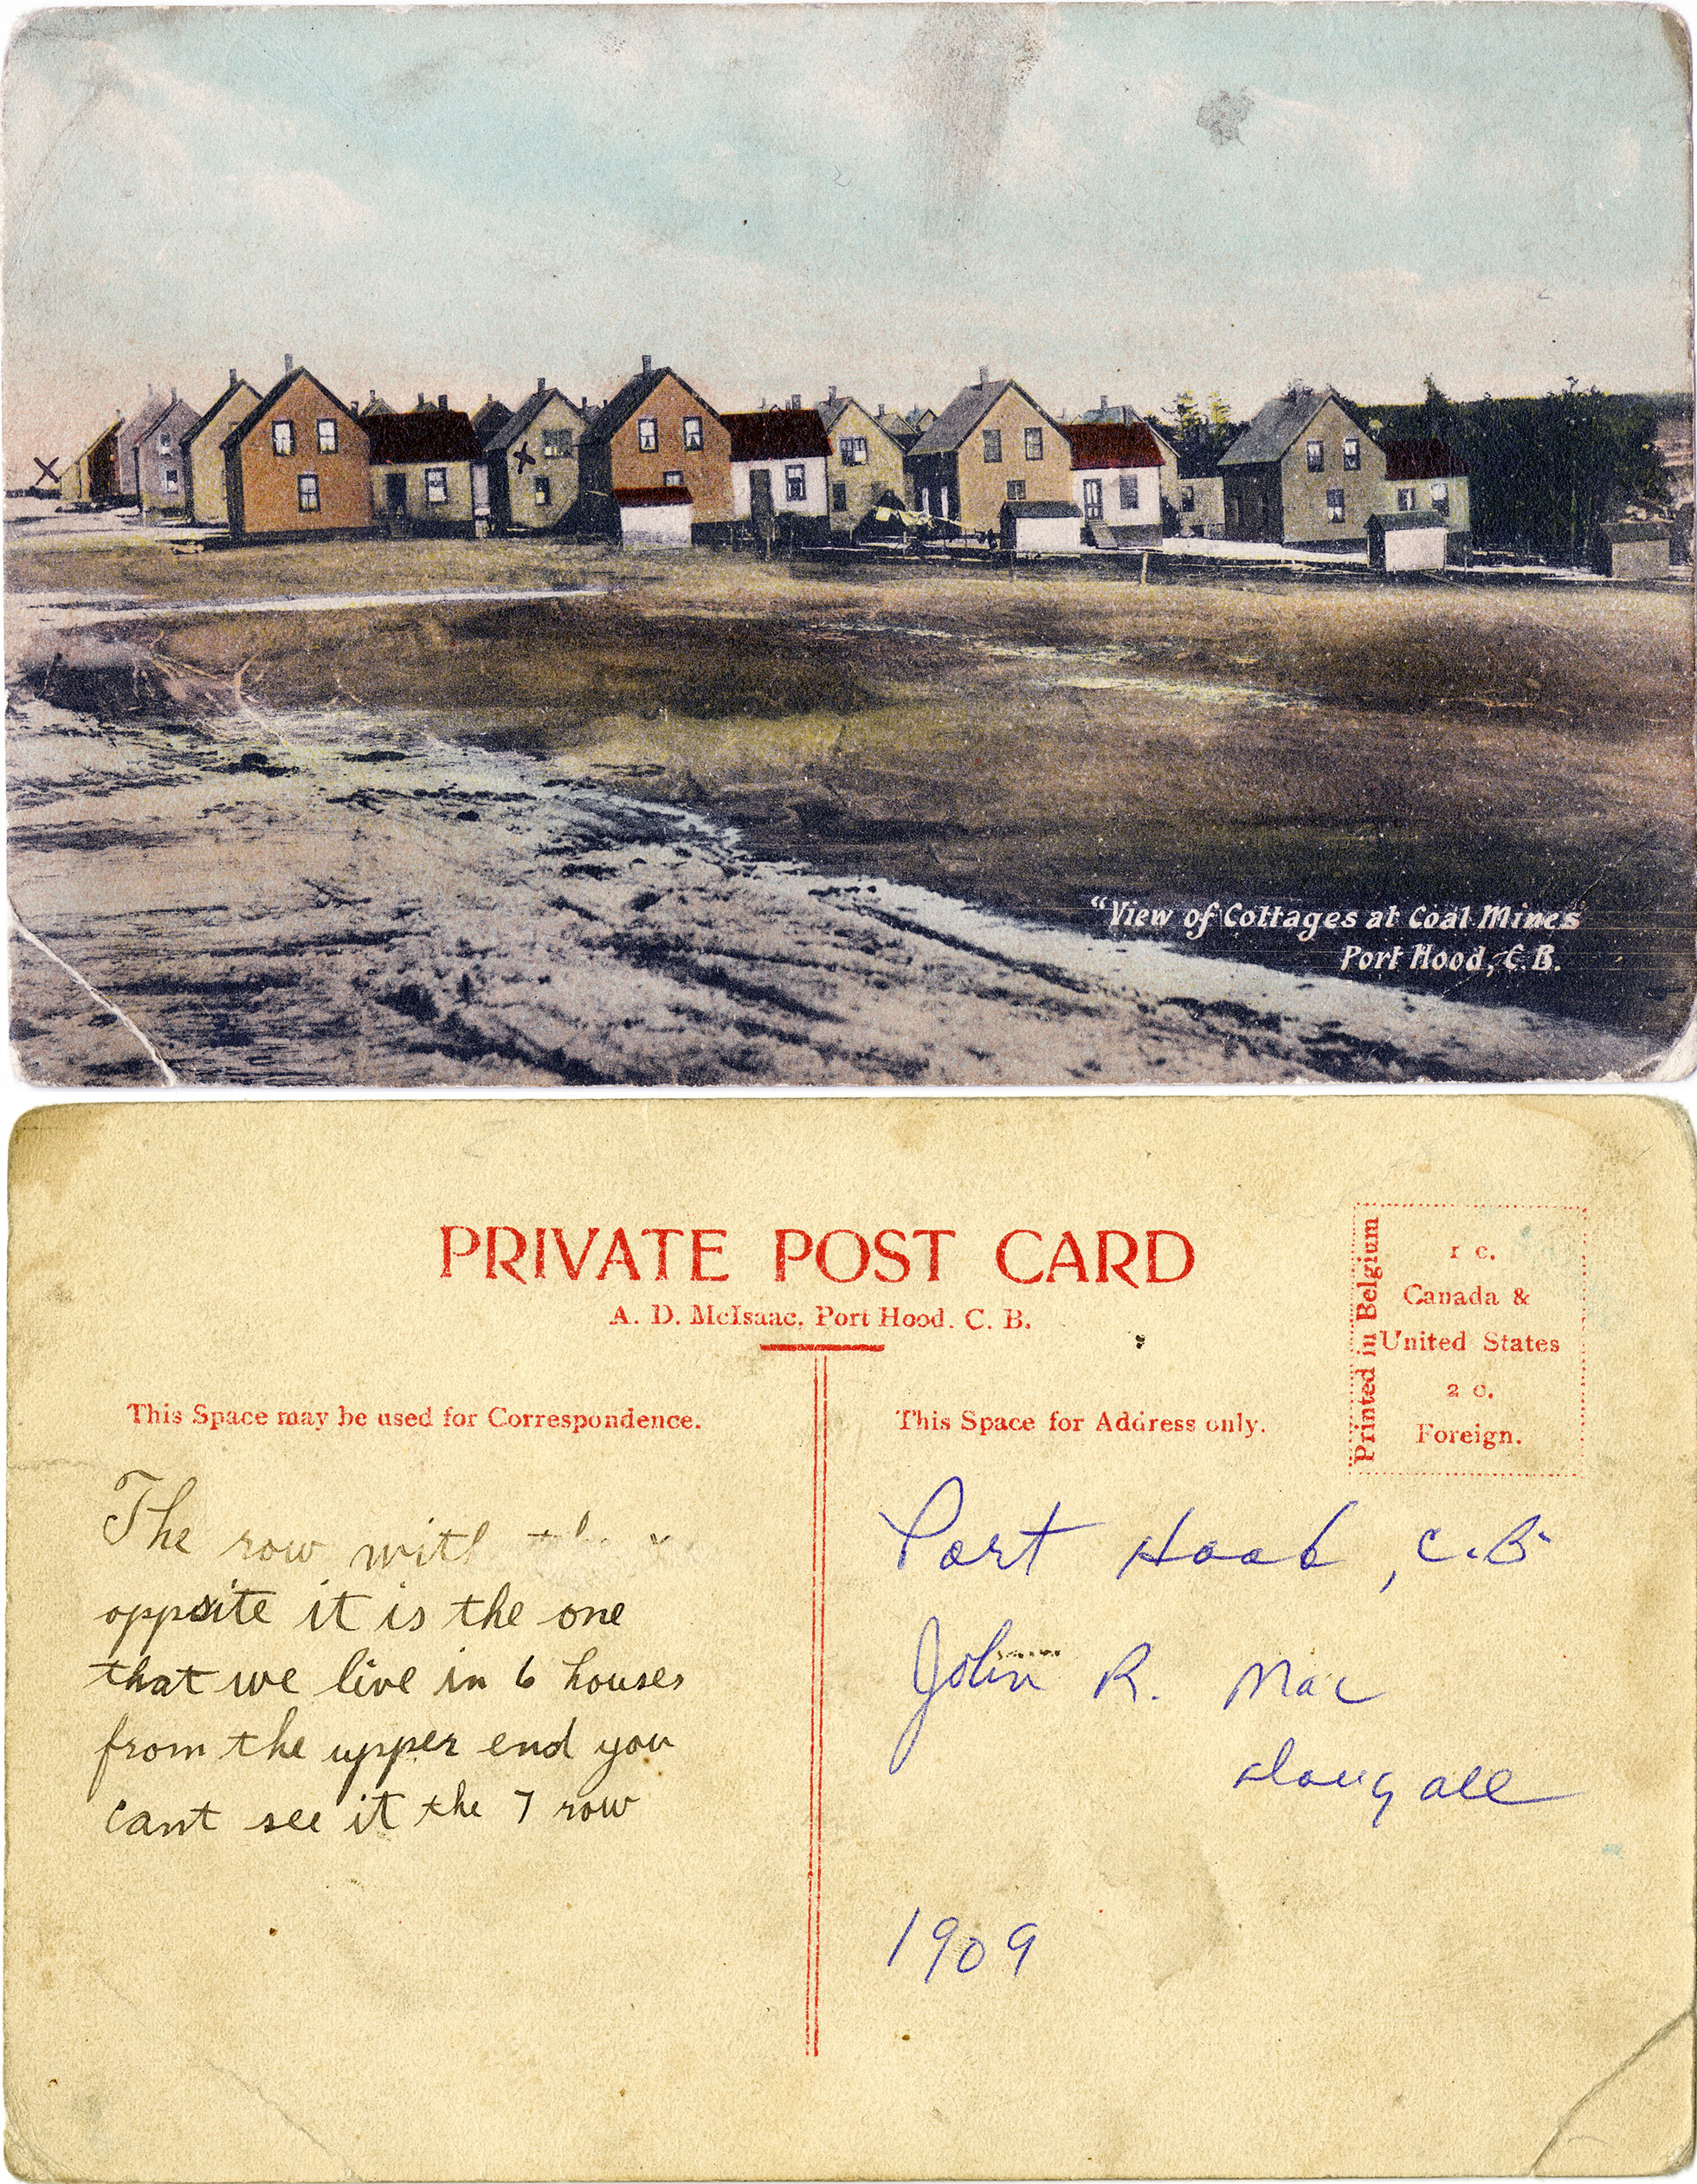 "View of Cottages at Coal Mines
Port Hood, C.B.
PRIVATE POST CARD
A. D. McIsaac, Port Hood. C. B.
Printed in Belgium
1 c.
Canada &
United States
2 c.
Foreign.
This Space may be used for Correspondence.
The row with
oppsite it is the one
that we live in 6 houses
from the upper end you
cant see it the 7 row
This Space for Address only.
Port Hood, C.B.
John R. Mac
dougall
1909